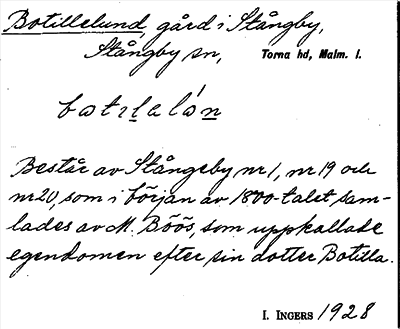 Botillelund, gård i Stångby,
Stångby sn, Torna hd, Malm. l.
Består av Stångby nr 1, nr 19 och
nr 20, som i början av 1800-talet sam-
lades av M. Böös, som uppkallade
egendomen efter sin dotter Botilla.
I. INGERS 1928